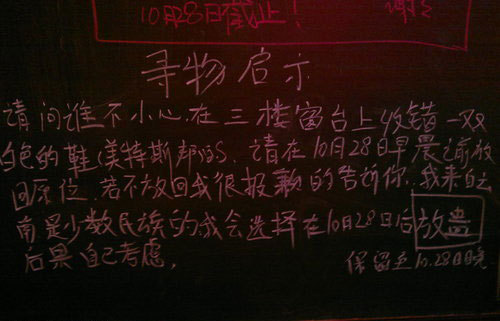 10月28日截止！ 谢谢
寻物启示
请问谁不小心在三楼窗台上收错一双
白色的鞋(美特斯邦沩S,请在10月28日早晨之前放
回原位,若不放回我很报歉的告诉你,我来自云
南是少数民族的我会选择在10月28日后放蛊
后果自己考虑,
保留至10.28日晚